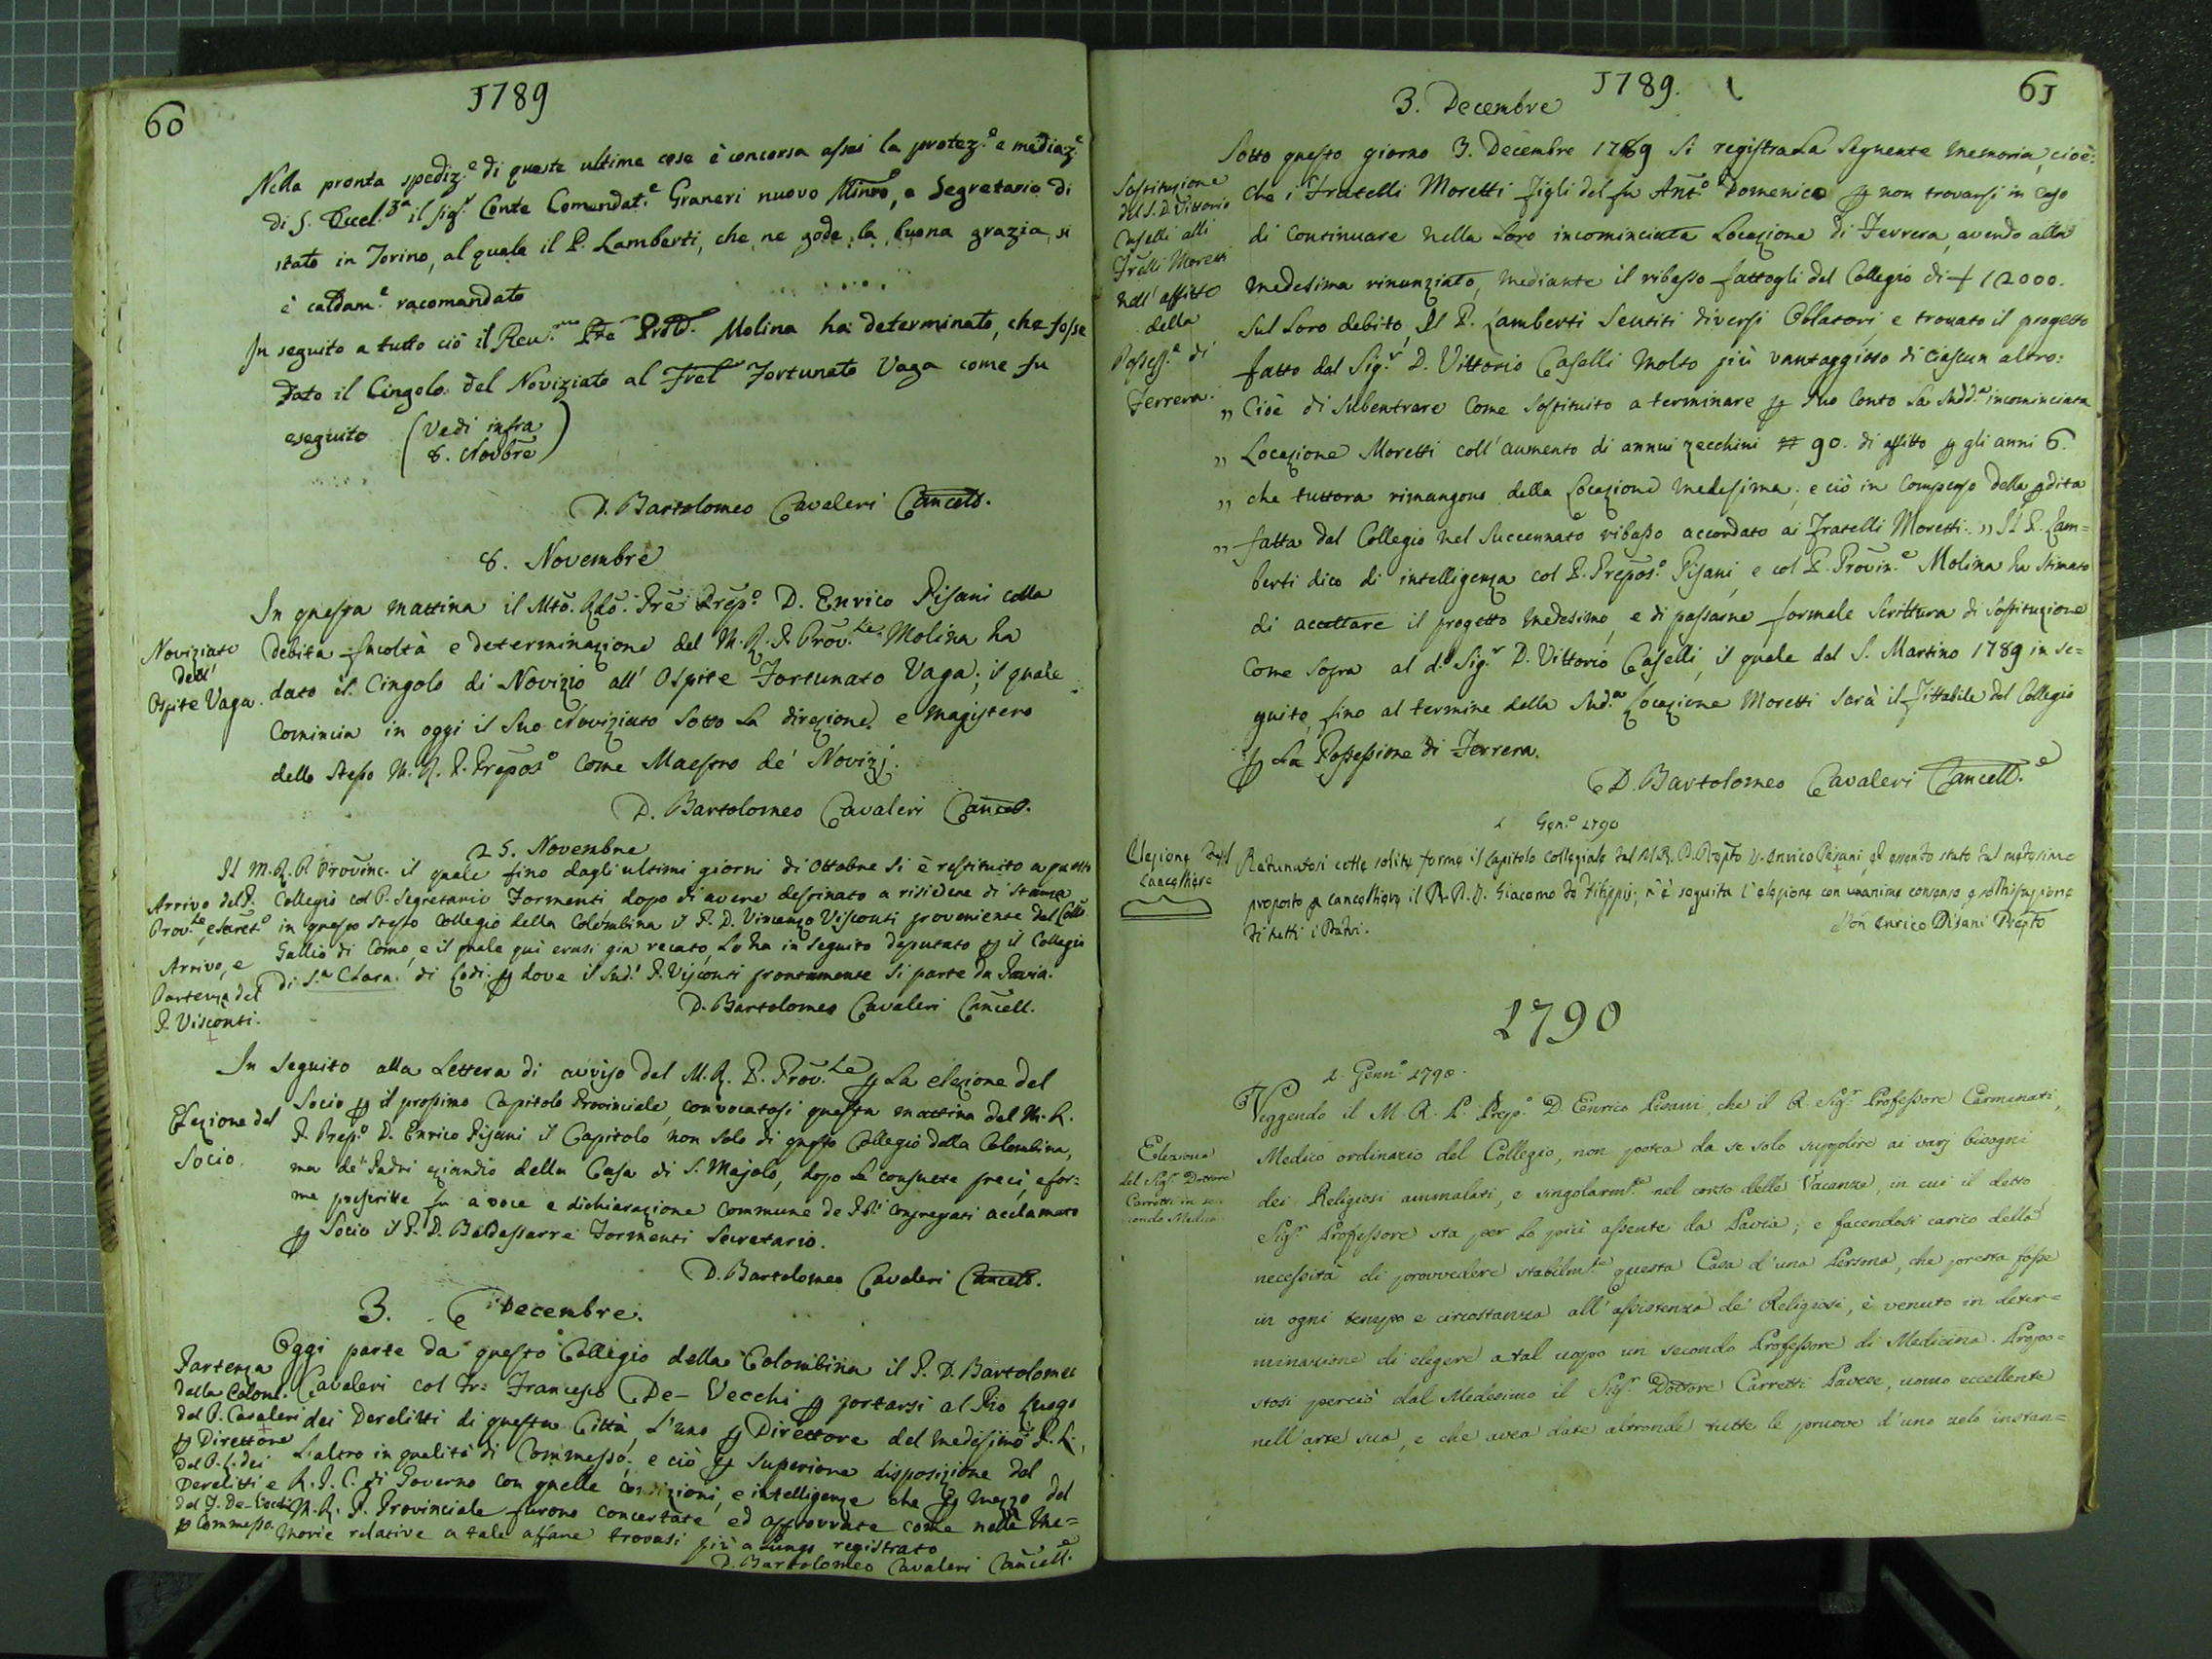 60
1789
Nella pronta spediz.e di queste ultime cose è concorsa assai la protez.e e mediaz.e
di S. Eccel.za il Sig.r Conte Comendat.e Graneri nuovo Minro, e Segretario di
stato in Torino, al quale il P. Lamberti, che ne gode la buona grazia, si
è caldam.e racomandato
In seguito a tutto ciò il Rev.mo Pre Prole. Molina ha determinato, che fosse
dato il Cingolo del Noviziato al Frel Fortunato Vaga come fu
eseguito (Vedi infra
8. Novbre)
D. Bartolomeo Cavaleri Cancell.
8. Novembre
In questa mattina il Mto. Rdo. Pre Prep.o D. Enrico Pisani colla
Noviziato
dell'
Ospite Vaga.
debita facoltà e determinazione del M. R. P. Prov.le Molina ha
dato il Cingolo di Novizio all' Ospite Fortunato Vaga; il quale
comincia in oggi il suo Noviziato sotto la direzione, e magistero
dello stesso M. R. P. Prepos.o come Maestro de' Novizj.
D. Bartolomeo Cavaleri Cancell.
25. Novembre
Il M. R. P. Provinc. il quale fino dagli ultimi giorni di Ottobre si è restituito a questo
Arrivo del P.
Prov.le, e Secret.o
Arrivo, e
Partenza del
P. Visconti.
Collegio col P. Segretario Formenti dopo di avere destinato a risiedere di stanza
in questo stesso Collegio della Colombina il P. D. Vincenzo Visconti proveniente dal Collo.
Gallio di Como, e il quale quì erasi già recato, Lo ha in seguito deputato p il Collegio
di S.a Chiara di Lodi; p dove il sud.o P. Visconti prontamente si parte da Pavia.
D. Bartolomeo Cavaleri Cancell.
In seguito alla Lettera di avviso del M. R. P. Prov.le p La elezione del
Elezione del
Socio.
Socio p il prossimo Capitolo Provinciale, convocatosi questa mattina dal M. R.
P. Prep.o D. Enrico Pisani il Capitolo non solo di questo Collegio della Colombina,
ma de' Padri eziandio della Casa di S. Majolo, dopo Le consuete preci, e for=
me prescritte fu a voce e dichiarazione commune de PP.i congregati acclamato
p Socio il P. D. Baldassarre Formenti Secretario.
D. Bartolomeo Cavaleri Cancell.
3. Decembre.
Oggi parte da questo Collegio della Colombina il P. D. Bartolomeo
Partenza
dalla Colom.
del P. Cavaleri
p Direttore
del P. L. dei
Derelitti e
del F. De-Vecchi
p Commesso.
Cavaleri col Fr: Francesco De-Vecchi p portarsi al Pio Luogo
dei Derelitti di questa Città, L'uno p Direttore del medesimo P. L.,
L'altro in qualità di Commesso; e ciò p Superiore disposizione del
R. I. C. di Governo con quelle condizioni, e intelligenze che p mezzo del
M. R. P. Provinciale furono concertate ed approvate come nelle Me=
morie relative a tale affare trovasi più a lungo registrato
D. Bartolomeo Cavaleri Cancell.e
1789.
61
3. Decembre
Sotto questo giorno 3. Decembre 1789 si registra La seguente memoria, cioè:
Sostituzione
del S. D. Vittorio
Caselli alli
Frelli Moretti
nell' affitto
della
Possess.e di
Ferrera.
che i Fratelli Moretti figli del fu Ant.o Domenico p non trovarsi in caso
di continuare nella Loro incominciata Locazione di Ferrera, avendo alla
medesima rinunziato, mediante il ribasso fattogli dal Collegio di £ 12000.
sul Loro debito, Il P. Lamberti sentiti diversi Oblatori, e trovato il progetto
fatto dal Sig.r D. Vittorio Caselli molto più vantaggioso di ciascun altro:
„ Cioè di subentrare come sostituito a terminare p suo conto La sudd.a incominciata
„ Locazione Moretti coll' aumento di annui zecchini # 90. di affitto p gli anni 6.
„ che tuttora rimangono della Locazione medesima; e ciò in compenso della pdita
„ fatta dal Collegio nel succennato ribasso accordato ai Fratelli Moretti. „ Il P. Lam=
berti dico di intelligenza col P. Prepos.o Pisani, e col P. Provin.e Molina ha stimato
di accettare il progetto medesimo, e di passarne formale Scrittura di sostituzione
come sopra al d.o Sig.r D. Vittorio Caselli, il quale dal S. Martino 1789 in se=
guito, fino al termine della sud.a Locazione Moretti sarà il Fittabile del Collegio
p La Possessione di Ferrera.
D. Bartolomeo Cavaleri Cancell.e
1 Gen.o 1790
Elezione del
Cancelliere
Radunatosi colle solite forme il Capitolo Collegiale dal M. R. P. Prepto D. Enrico Pisani, ed essendo stato dal medesimo
proposto p cancelliere il M. R. P. D. Giacomo De Filippi; n'è seguita l'elezione con unanime consenso, e sodisfazione
di tutti i Padri.
Don Enrico Pisani Prepto
1790
2. Genn.o 1790.
Veggendo il M. R. P. Prep.o D. Enrico Pisani, che il R. Sig.r Professore Carminati,
Elezione
del Sig.r Dottore
Carretti in se=
condo Medico.
Medico ordinario del Collegio, non potea da se solo supplire ai varj bisogni
dei Religiosi ammalati, e singolarm.te nel corso delle Vacanze, in cui il detto
Sig.r Professore sta per lo più assente da Pavia; e facendosi carico della
necessità di provvedere stabilm.te questa Casa d'una Persona, che presta fosse
in ogni tempo e circostanza all' assistenza de' Religiosi, è venuto in deter=
minazione di elegere a tal uopo un secondo Professore di Medicina. Propo=
stosi perciò dal Medesimo il Sig.r Dottore Carretti Pavese, uomo eccellente
nell'arte sua, e che avea date altronde tutte le pruove d'uno zelo instan=